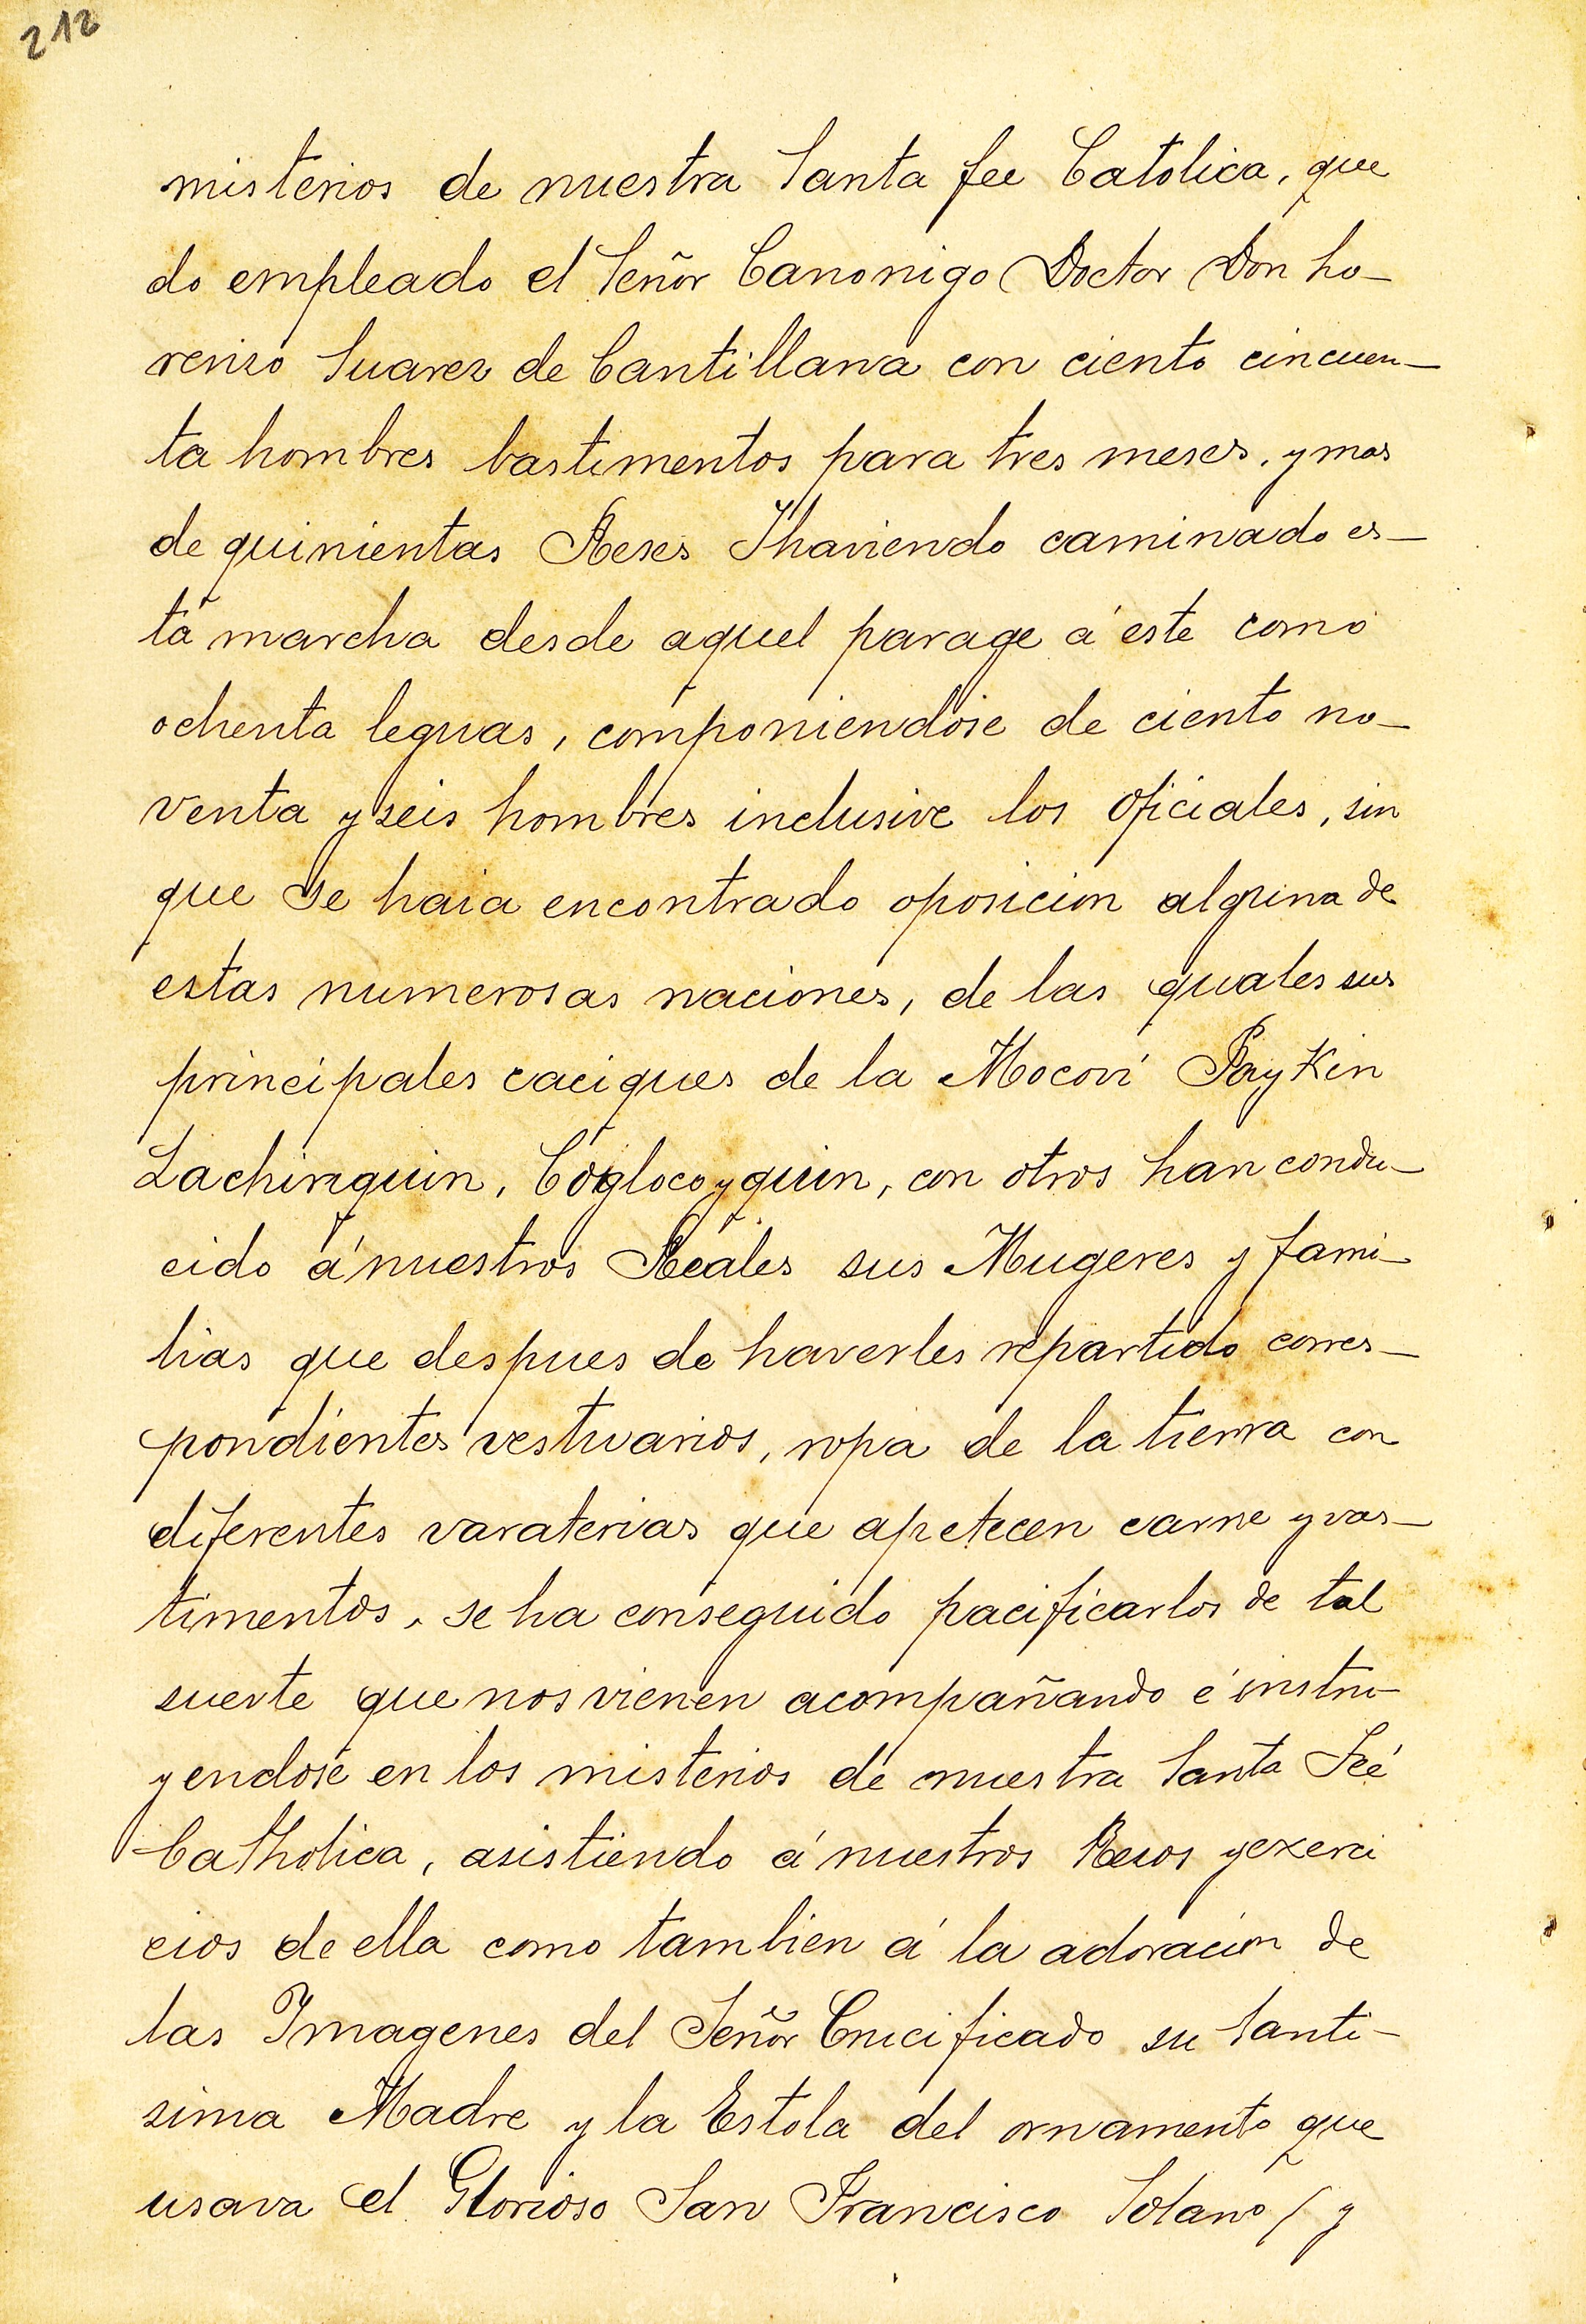 212
misterios de nuestra Santa fee Catolica, que
do empleado el Señor Canonigo Doctor Don Lo-
renzo Suarez de Cantillana con ciento cincuen-
ta hombres bastimentos para tres meses, y mas
de quinientas Reses Y haviendo caminado es-
tá marcha desde aquel parage á este como
ochenta leguas, componiendose de ciento no-
venta y seis hombres inclusive los oficiales, sin
que se haia encontrado oposicion alguna de
estas numerosas naciones, de las quales sus
principales caciques de la Mocoví Paykin
Lachiriquin, Coglocoyquin, con otros han condu-
cido á nuestros Reales sus Mugeres y fami-
lias que despues de haverles repartido corres-
pondientes vestuarios, ropa de la tierra con
diferentes varaterias que apetecen carne y vas-
timentos, se ha conseguido pacificarlos de tal
suerte que nos vienen acompañando é instru-
yendose en los misterios de nuestra Santa Feé
Catholica, asistiendo á nuestros Resos y exerci
cios de ella como tambien á la adoracion de
las Imagenes del Señor Crucificado su Santi-
sima Madre y la Estola del ornamento que
usava el Glorioso San Francisco Solano / y